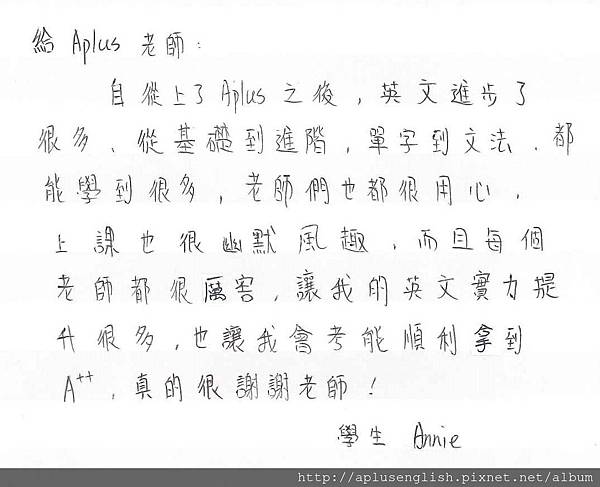 給 Aplus 老師:
自從上了 Aplus 之後,英文進步了
很多、從基礎到進階,單字到文法、都
能學到很多,老師們也都很用心,
上課也很幽默風趣,而且每個
老師都很厲害,讓我的英文實力提
升很多,也讓我會考能順利拿到
A++,真的很謝謝老師!
學生 Annie
http://aplusenglish.pixnet.net/album